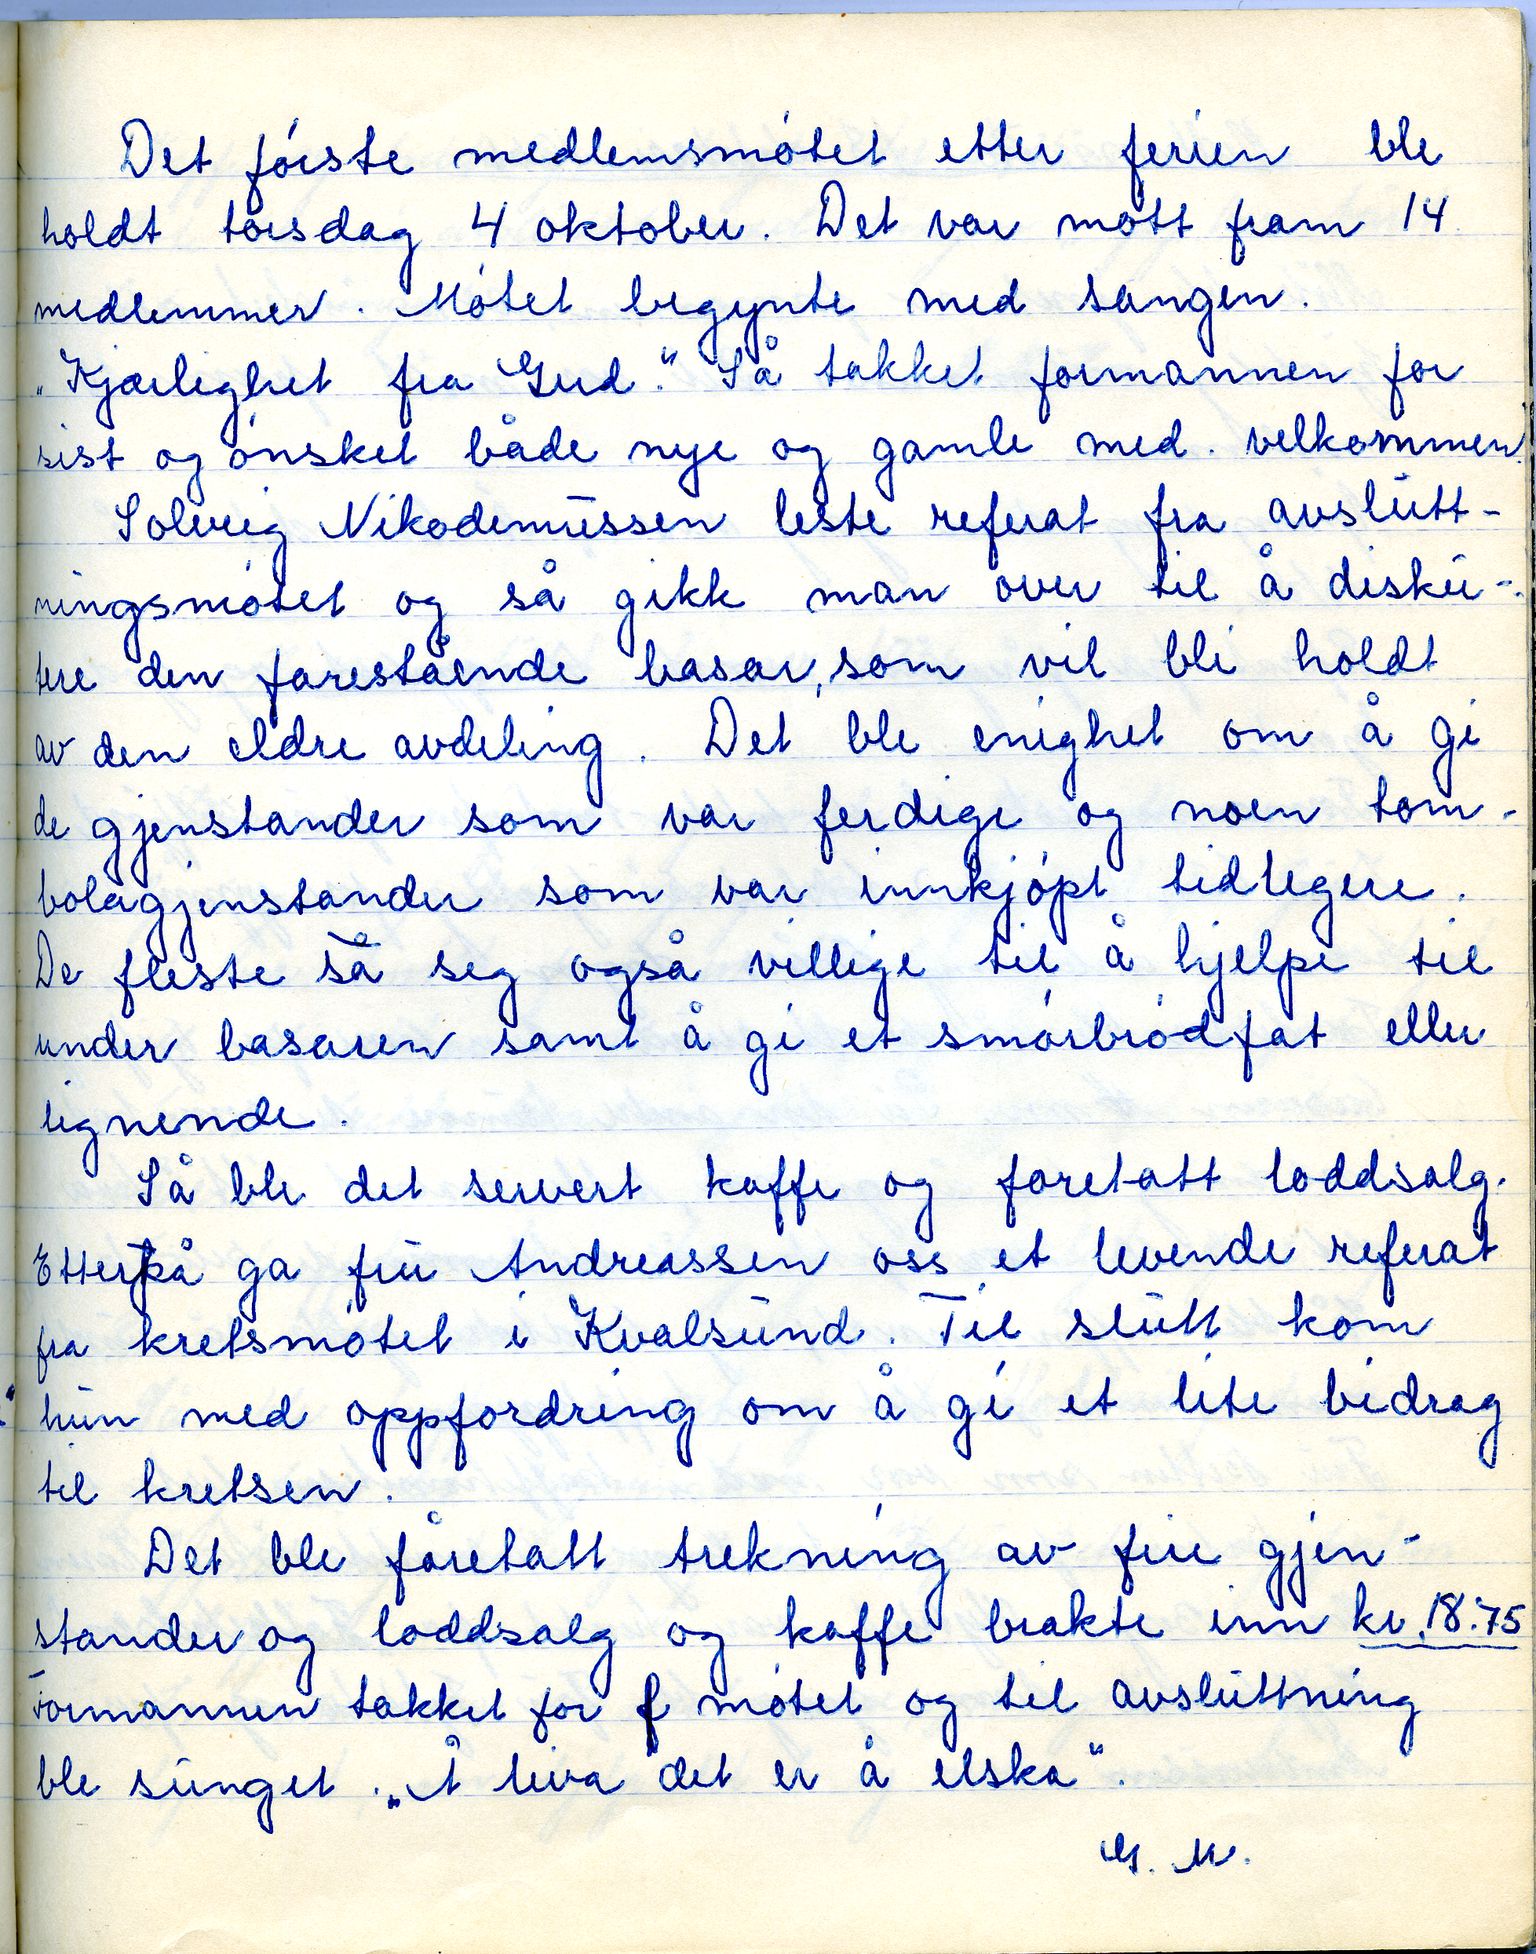 Det første medlemsmøtet etter ferien ble
holdt torsdag 4 oktober. Det var møtt fram 14
medlemmer. Møtet begynte med sangen.
„Kjærlighet fra Gud." Så takket formannen for
sist og ønsket både nye og gamle med. velkommen.
Solveig Nikodemussen leste referat fra avslutt-
ningsmøtet og så gikk man over til å disku-
tere den forestående basar, som vil bli holdt
av den eldre avdeling. Det ble enighet om å gi
de gjenstander som var ferdige og noen tom-
bolagjenstander som var innkjøpt tidligere.
De fleste så seg også villige til å hjelpe til
under basaren samt å gi et smørbrødfat eller
lignende.
Så ble det servert kaffe og foretatt loddsalg.
Etterpå ga fru Andreassen oss et levende referat
fra kretsmøtet i Kvalsund. Til slutt kom
hun med oppfordring om å gi et lite bidrag
til kretsen.
Det ble foretatt trekning av fire gjen-
stander og loddsalg og kaffe brakte inn kr. 18.75
Formannen takket for møtet og til avsluttning
ble sunget. „Å leva det er å elska".
G. M.